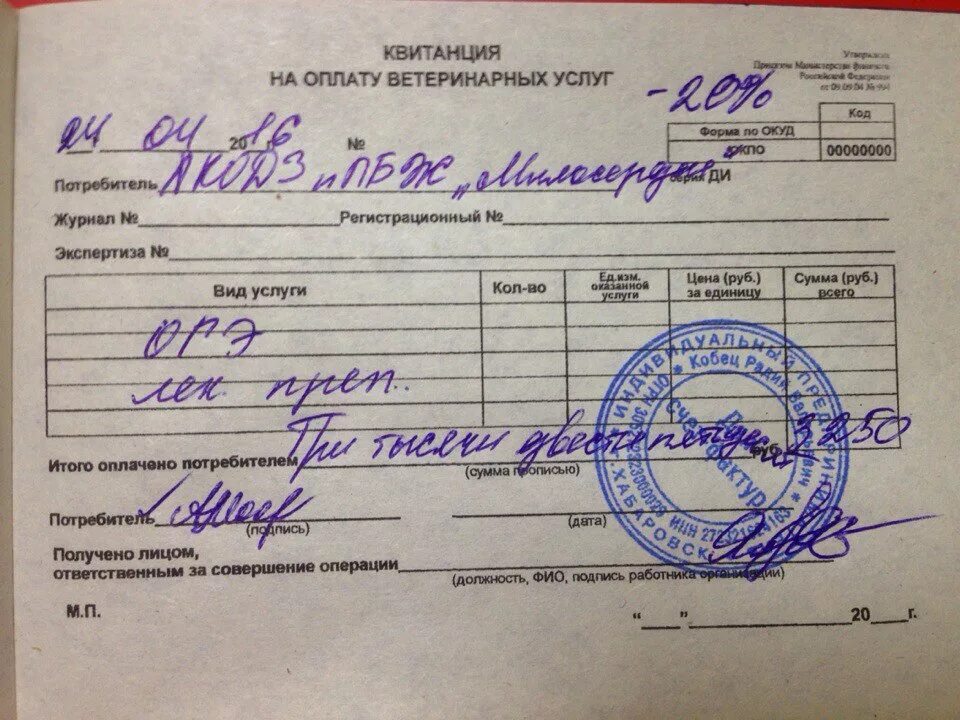 КВИТАНЦИЯ
НА ОПЛАТУ ВЕТЕРИНАРНЫХ УСЛУГ
Утверждена
Приказом Министерства финансов
Российской Федерации
от 09.09.04 № 994
-20%
Код
Форма по ОКУД
ОКПО 00000000
24 04 2016 г. №
Потребитель АКОДЗ и ПБЖ „Милосердие“ серия ДИ
Журнал № Регистрационный №
Экспертиза №
Вид услуги Кол-во Ед.изм. оказанной услуги Цена (руб.) за единицу Сумма (руб.) всего
ОРЭ
лек. преп.
Итого оплачено потребителем Три тысячи двести пятьдесят руб. 3250
(сумма прописью)
Потребитель
(подпись) (дата)
Получено лицом,
ответственным за совершение операции
(должность, ФИО, подпись работника организации)
М.П. “ ” 20 г.
ИНДИВИДУАЛЬНЫЙ ПРЕДПРИНИМАТЕЛЬ
Кобец Радик
Для счетов фактур
Г.ХАБАРОВСК
ИНН